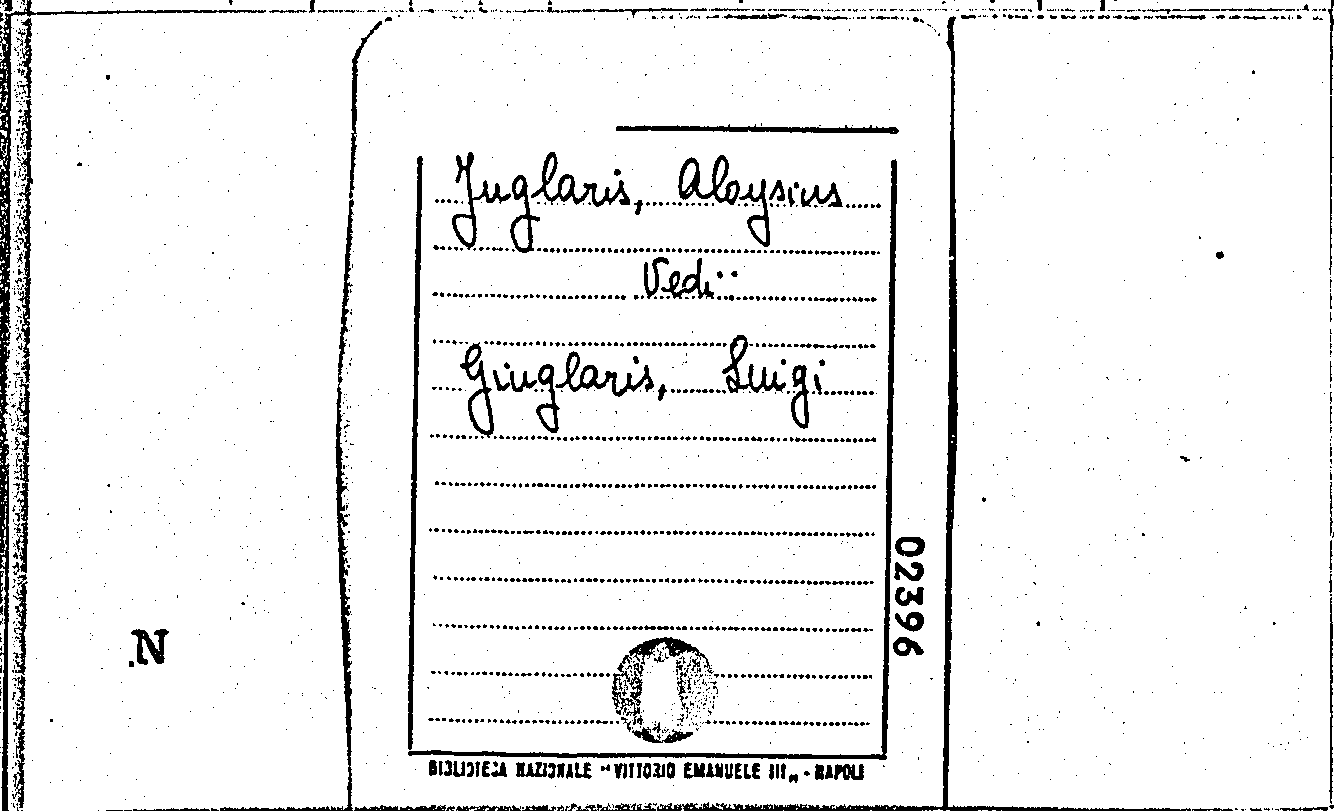 Juglaris, Aloysius
Vedi:
Giuglaris, Luigi
02396
N
BIBLIOTECA NAZIONALE "VITTORIO EMANUELE III„ - NAPOLI